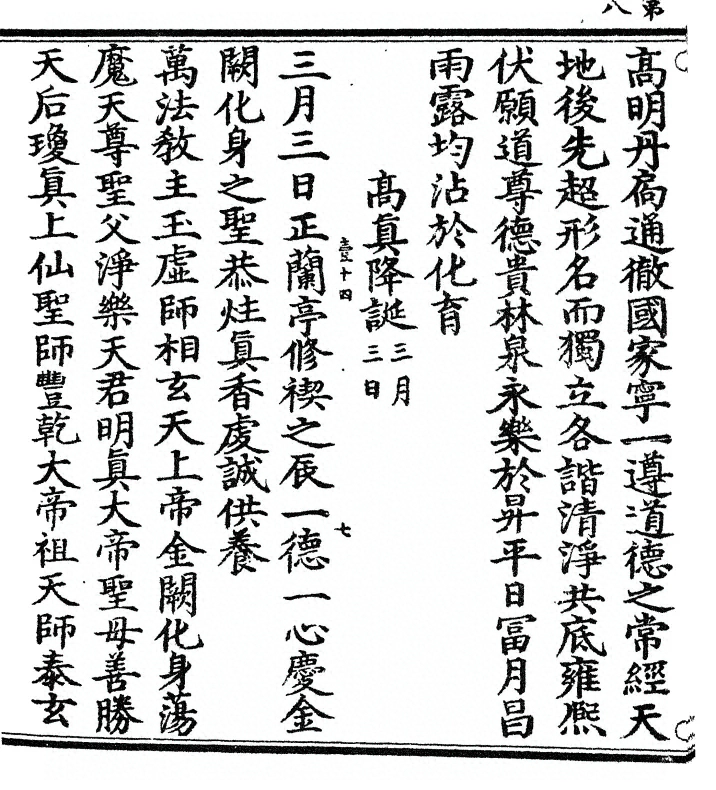 第
八
高明丹扃通徹國家寧一遵道德之常經天
地後先超形名而獨立各諧清淨共底雍熈
伏願道尊德貴林泉永樂於昇平日冨月昌
雨露均沾於化育
高眞降誕三月三日
壹十四
三月三日正蘭亭修禊之辰一德一心慶金
七
闕化身之聖恭炷眞香虔誠供養
萬法教主玉虛師相玄天上帝金闕化身蕩
魔天尊聖父淨樂天君明眞大帝聖母善勝
天后瓊眞上仙聖師豐乾大帝祖天師泰玄